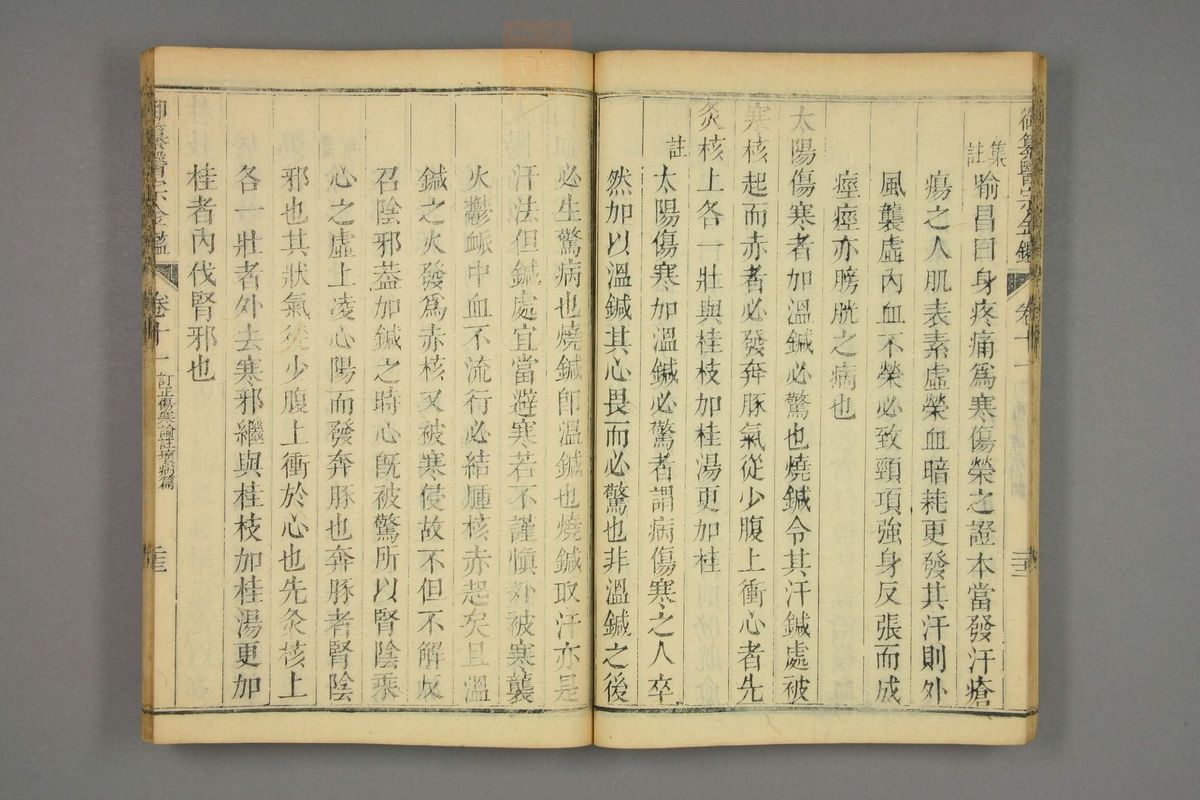 御纂醫宗金鑑 卷十一
集註喻昌曰身疼痛爲寒傷榮之證本當發汗瘡
瘍之人肌表素虛榮血暗耗更發其汗則外
風襲虛內血不榮必致頸項強身反張而成
痙痙亦膀胱之病也
太陽傷寒者加溫鍼必驚也燒鍼令其汗鍼處被
寒核起而赤者必發奔豚氣從少腹上衝心者先
灸核上各一壯與桂枝加桂湯更加桂
註太陽傷寒加溫鍼必驚者謂病傷寒之人卒
然加以溫鍼其心畏而必驚也非溫鍼之後
必生驚病也燒鍼即溫鍼也燒鍼取汗亦是
汗法但鍼處宜當避寒若不謹慎外被寒襲
火鬱脈中血不流行必結腫核赤起矣且溫
鍼之火發爲赤核又被寒侵故不但不解反
召陰邪蓋加鍼之時心旣被驚所以腎陰乘
心之虛上凌心陽而發奔豚也奔豚者腎陰
邪也其狀氣從少腹上衝於心也先灸核上
各一壯者外去寒邪繼與桂枝加桂湯更加
桂者內伐腎邪也
御纂醫宗金鑑 卷十一 訂正傷寒論註壞病篇